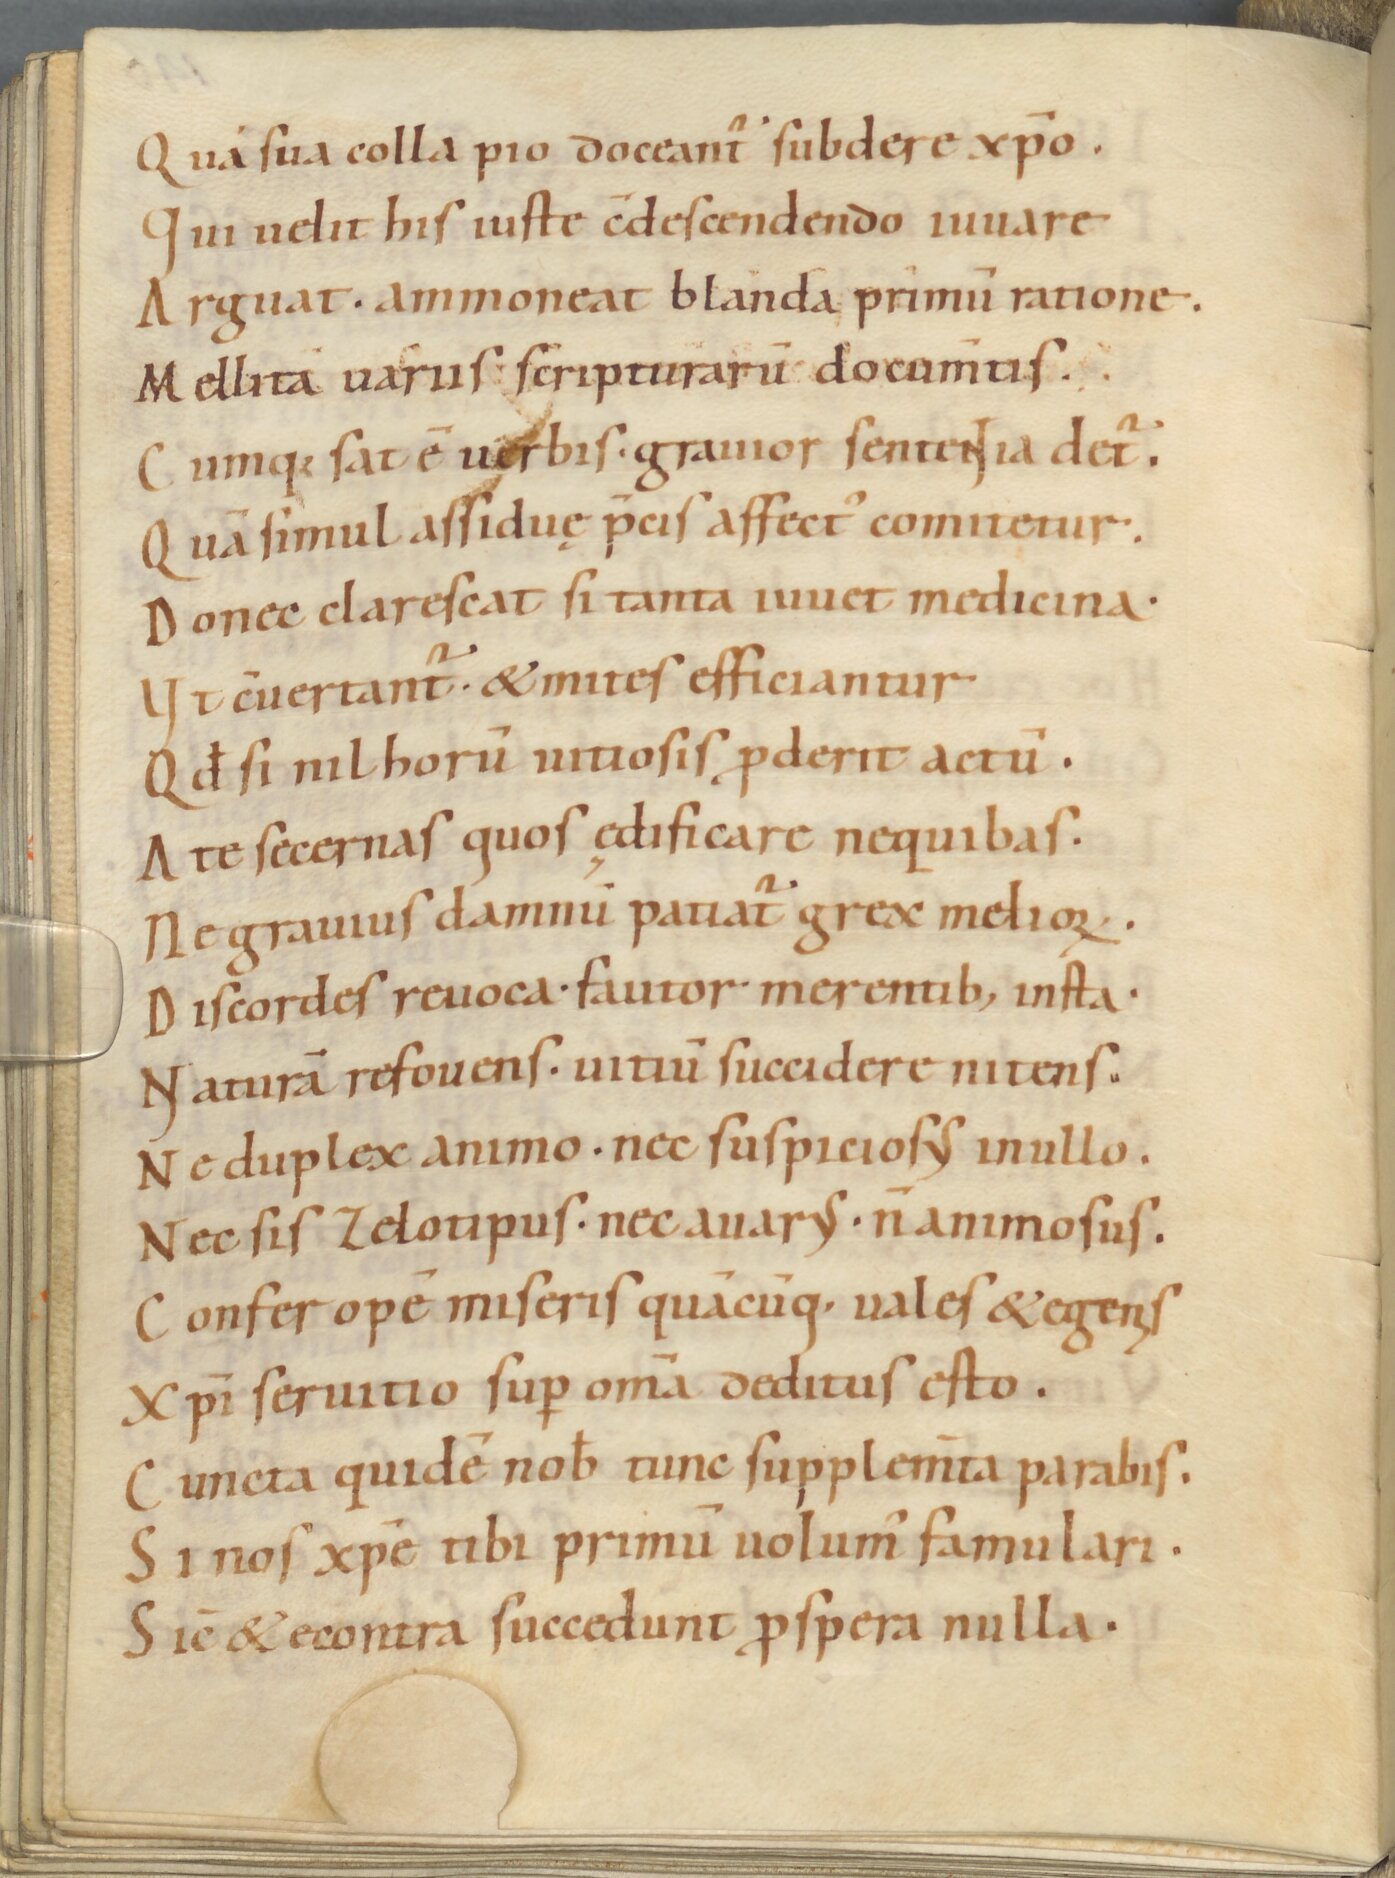 Quā sua colla pio doceant᷑ subdere xp̄o.
Qui uelit his iuste c̄descendendo iuuare
Arguat. ammoneat blanda primū ratione.
Mellitā uariis scripturarū docum̄tis.
Cumq; sat ē uerbis. grauior sententia det᷑.
Quā simul assiduę p̄cis affect᾿ comitetur.
Donec clarescat si tanta iuuet medicina.
Vt c̄uertant᷑. & mites efficiantur
Qđ si nil horū uitiosis ꝓderit actū.
A te secernas quos ędificare nequibas.
Ne grauius damnū patiat᷑ grex melioꝝ.
Discordes reuoca. fautor merentib; insta.
Naturā refouens. uitiū succidere nitens.
Ne duplex animo. nec suspiciosus in ullo.
Nec sis Zelotipus. nec auarus. n̄ animosus.
Confer opē miseris quācūq; uales & egens
Xp̄i seruitio suꝑ om̄a deditus esto.
Cuncta quidē nob̄ tunc supplem̄ta parabis.
Si nos xp̄e tibi primū uolum᾿ famulari.
Sic̄ & econtra succedunt ꝓspera nulla.